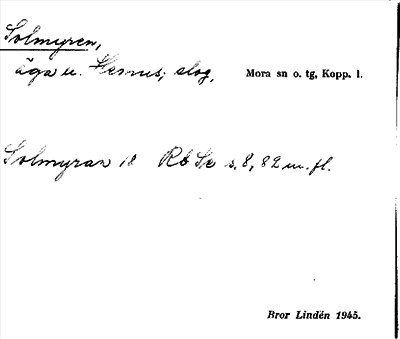 Solmyren,
äga u. Hemus; slog, Mora sn o. tg, Kopp. l.
Solmyran 18 Rb Se s. 8, 82 m. fl.
Bror Lindén 1945.